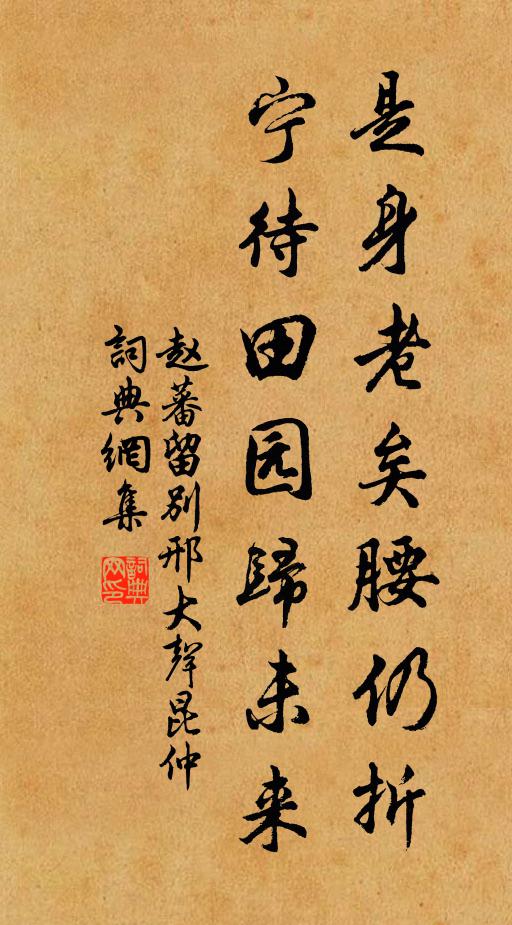 是身老矣腰仍折
宁待田园歸未来
赵蕃留别邢大聲昆仲
詞典網集
詞典網印